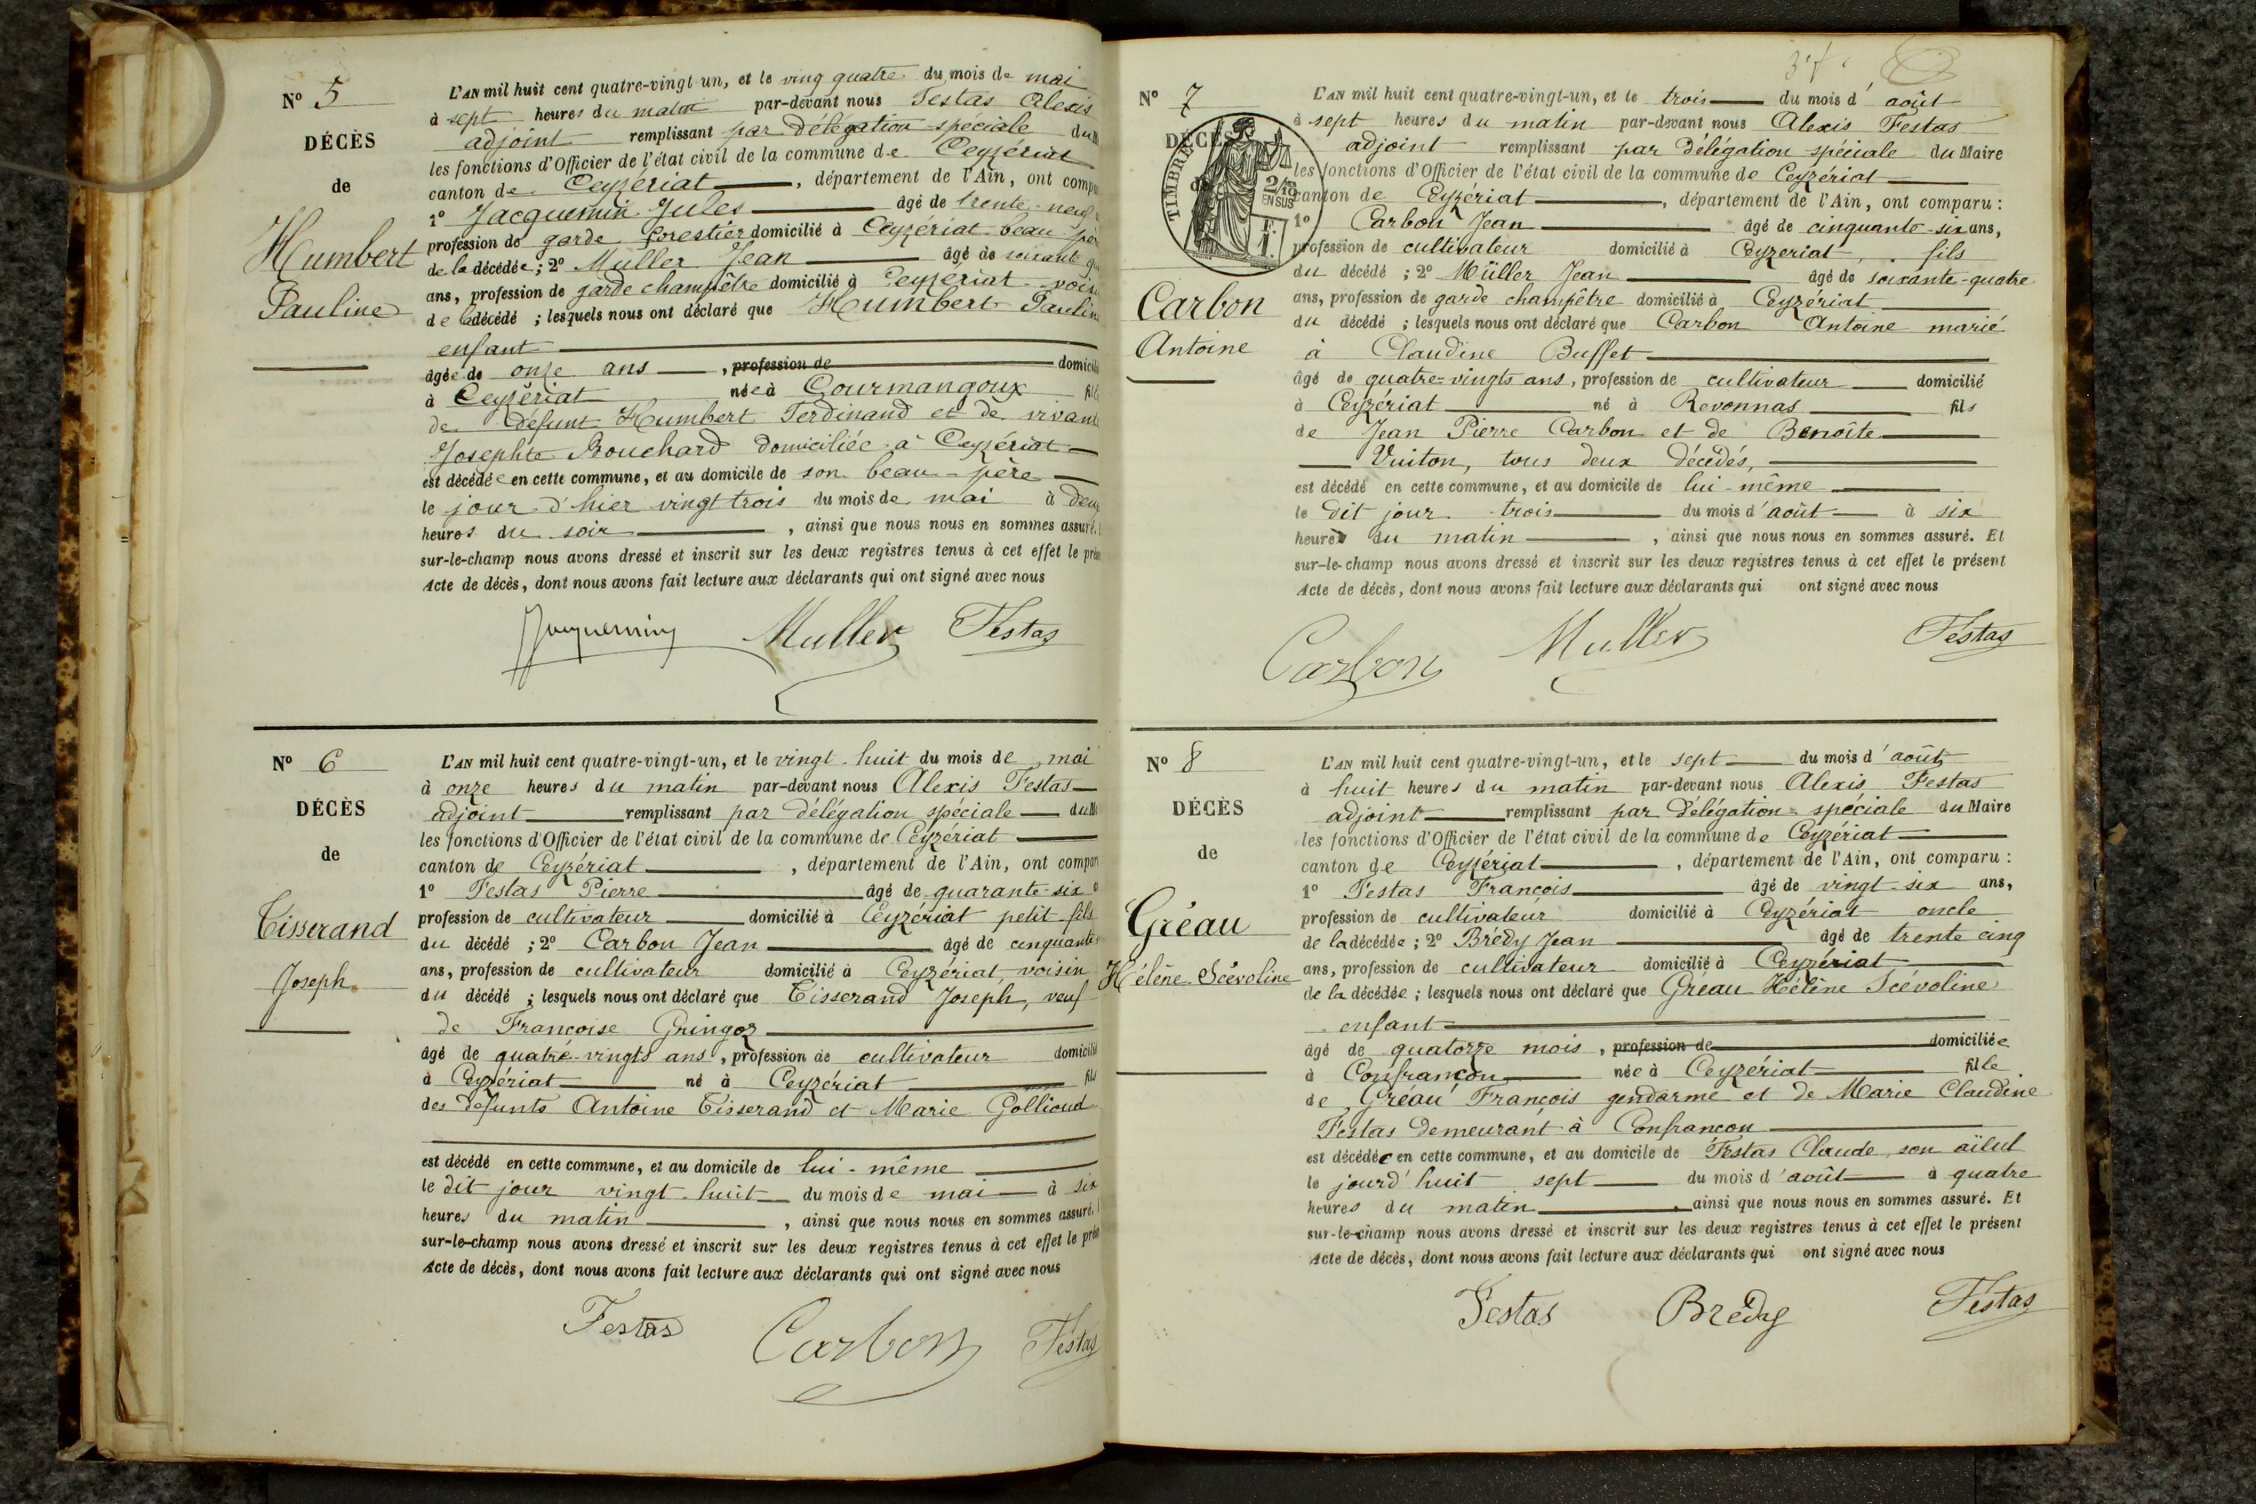 N° 5
DÉCÈS
de
Humbert
Pauline
L'AN mil huit cent quatre-vingt-un, et le ving quatre du mois de mai
à sept heures du matin par-devant nous Festas Alexis
adjoint remplissant par délégation spéciale du M
les fonctions d'Officier de l'état civil de la commune de Ceyzériat
canton de Ceyzériat, département de l'Ain, ont compa
1° Jacquemin Jules âgé de trente-neuf
profession de garde forestier domicilié à Ceyzériat beau-pèr
de la décédée ; 2° Muller Jean âgé de soixant
ans, profession de garde champêtre domicilié à Ceyzériat voisi
de la décédé ; lesquels nous ont déclaré que Humbert Paulin
enfant
âgée de onze ans, profession de domicili
à Ceyzériat née à Courmangoux fill
de défunt Humbert Ferdinand et de vivante
Josephte Bouchard domiciliée à Ceyzériat
est décédée en cette commune, et au domicile de son beau-père
le jour d'hier vingt trois du mois de mai à deux
heures du soir, ainsi que nous nous en sommes assuré.
sur-le-champ nous avons dressé et inscrit sur les deux registres tenus à cet effet le prése
Acte de décès, dont nous avons fait lecture aux déclarants qui ont signé avec nous
Jacquemin Muller Festas
N° 6
DÉCÈS
de
Tisserand
Joseph
L'AN mil huit cent quatre-vingt-un, et le vingt-huit du mois de mai
à onze heures du matin par-devant nous Alexis Festas
adjoint remplissant par délégation spéciale du M
les fonctions d'Officier de l'état civil de la commune de Ceyzériat
canton de Ceyzériat, département de l'Ain, ont compar
1° Festas Pierre âgé de quarante-six
profession de cultivateur domicilié à Ceyzériat petit-fils
du décédé ; 2° Carbon Jean âgé de cinquante
ans, profession de cultivateur domicilié à Ceyzériat voisin
du décédé ; lesquels nous ont déclaré que Tisserand Joseph, veuf
de Françoise Gringoz
âgé de quatre-vingts ans, profession de cultivateur domicilié
à Ceyzériat né à Ceyzériat fils
des défunts Antoine Tisserand et Marie Gollioud
est décédé en cette commune, et au domicile de lui-même
le dit jour vingt-huit du mois de mai à six
heures du matin, ainsi que nous nous en sommes assuré.
sur-le-champ nous avons dressé et inscrit sur les deux registres tenus à cet effet le prése
Acte de décès, dont nous avons fait lecture aux déclarants qui ont signé avec nous
Festas Carbon Festas
N° 7
DÉCÈS
de
TIMBRE
2/10
EN SUS
Carbon
Antoine
L'AN mil huit cent quatre-vingt-un, et le trois du mois d'août
à sept heures du matin par-devant nous Alexis Festas
adjoint remplissant par délégation spéciale du Maire
les fonctions d'Officier de l'état civil de la commune de Ceyzériat
canton de Ceyzériat, département de l'Ain, ont comparu :
1° Carbon Jean âgé de cinquante-six ans,
profession de cultivateur domicilié à Ceyzeriat, fils
du décédé ; 2° Müller Jean âgé de soixante-quatre
ans, profession de garde champêtre domicilié à Ceyzériat
du décédé ; lesquels nous ont déclaré que Carbon Antoine marié
à Claudine Buffet
âgé de quatre-vingts ans, profession de cultivateur domicilié
à Ceyzériat né à Revonnas fils
de Jean Pierre Carbon et de Benoîte
Vuiton, tous deux décédés,
est décédé en cette commune, et au domicile de lui-même
le dit jour trois du mois d'août à six
heures du matin, ainsi que nous nous en sommes assuré. Et
sur-le-champ nous avons dressé et inscrit sur les deux registres tenus à cet effet le présent
Acte de décès, dont nous avons fait lecture aux déclarants qui ont signé avec nous
Carbon Muller Festas
N° 8
DÉCÈS
de
Gréau
Hélène Scévoline
L'AN mil huit cent quatre-vingt-un, et le sept du mois d'août
à huit heures du matin par-devant nous Alexis Festas
adjoint remplissant par délégation spéciale du Maire
les fonctions d'Officier de l'état civil de la commune de Ceyzériat
canton de Ceyzériat, département de l'Ain, ont comparu :
1° Festas François âgé de vingt-six ans,
profession de cultivateur domicilié à Ceyzériat oncle
de la décédée ; 2° Brédy Jean âgé de trente cinq
ans, profession de cultivateur domicilié à Ceyzériat
de la décédée ; lesquels nous ont déclaré que Gréau Hélène Scévoline
enfant
âgé de quatorze mois, profession de domiciliée
à Confrançon née à Ceyzériat fille
de Gréau François gendarme et de Marie Claudine
Festas demeurant à Confrançon
est décédée en cette commune, et au domicile de Festas Claude son aïeul
le jourd'huit sept du mois d'août à quatre
heures du matin, ainsi que nous nous en sommes assuré. Et
sur-le-champ nous avons dressé et inscrit sur les deux registres tenus à cet effet le présent
Acte de décès, dont nous avons fait lecture aux déclarants qui ont signé avec nous
Festas Brédy Festas